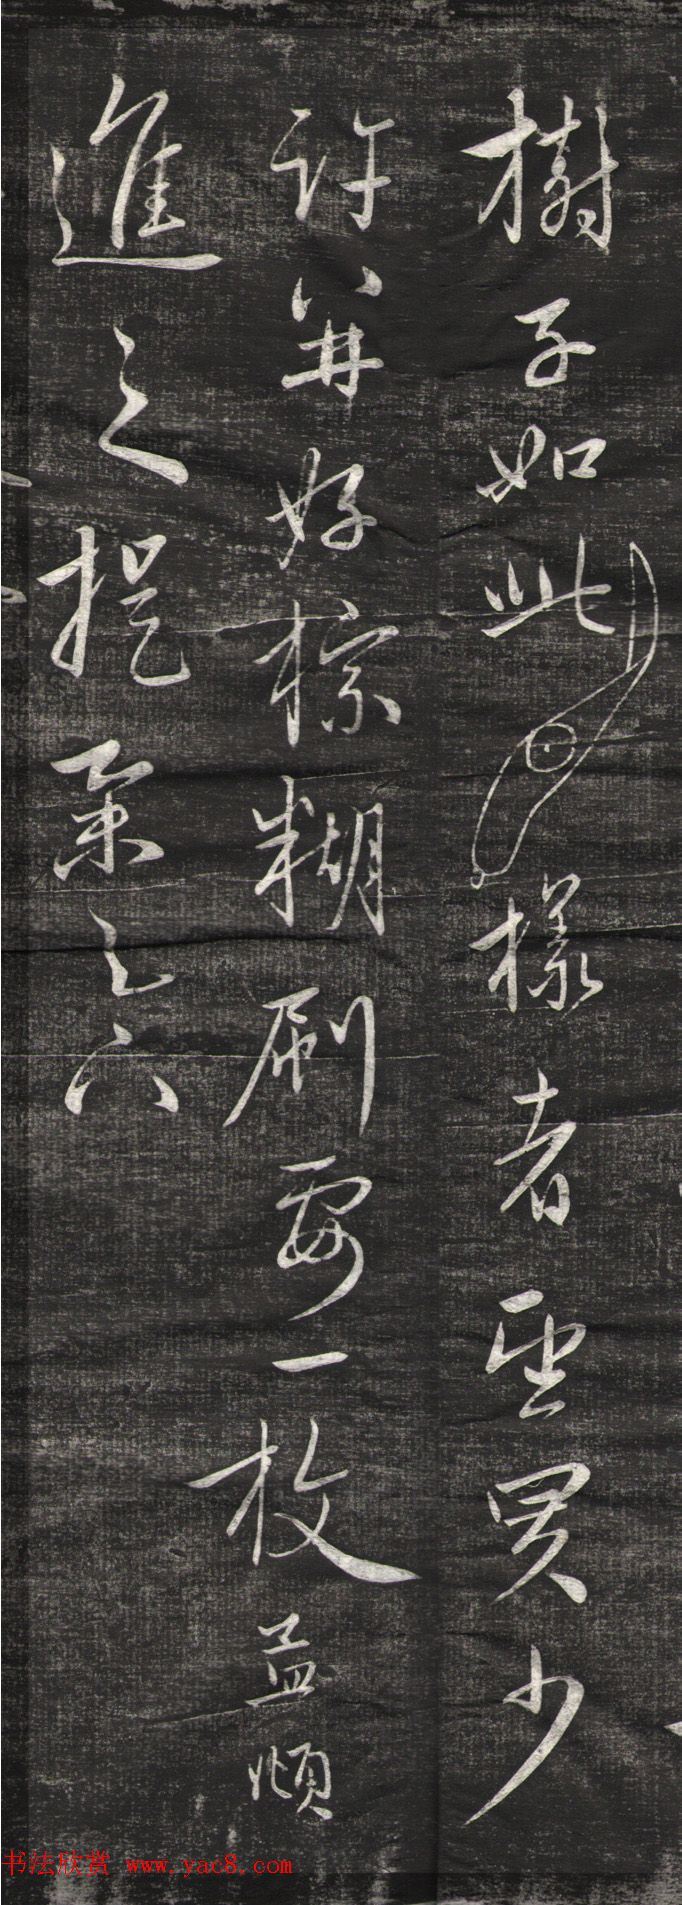 樹子如此樣者望買少
許并好棕糊刷要一枚 孟頫
進之提舉
书法欣赏 www.yac8.com